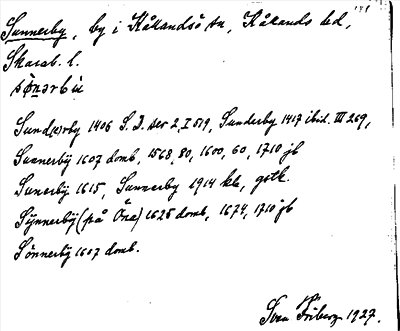 Sunnerby, by i Kålandsö sn, Kålands hd,
Skarab. l.
sønərbü
Sund(e)rby 1406 S. D. ser 2, I 519, Sunderby 1417 ibid. III 269,
Sunnerbÿ 1607 domb, 1568, 80, 1600, 60, 1710 jb
Sunerbÿ 1615, Sunnerby 1914 kla, gotl.
Sÿnnerbÿ (på Öna) 1625 domb, 1674, 1710 jb
Sönnerbÿ 1607 domb.
Sven Friberg 1927.